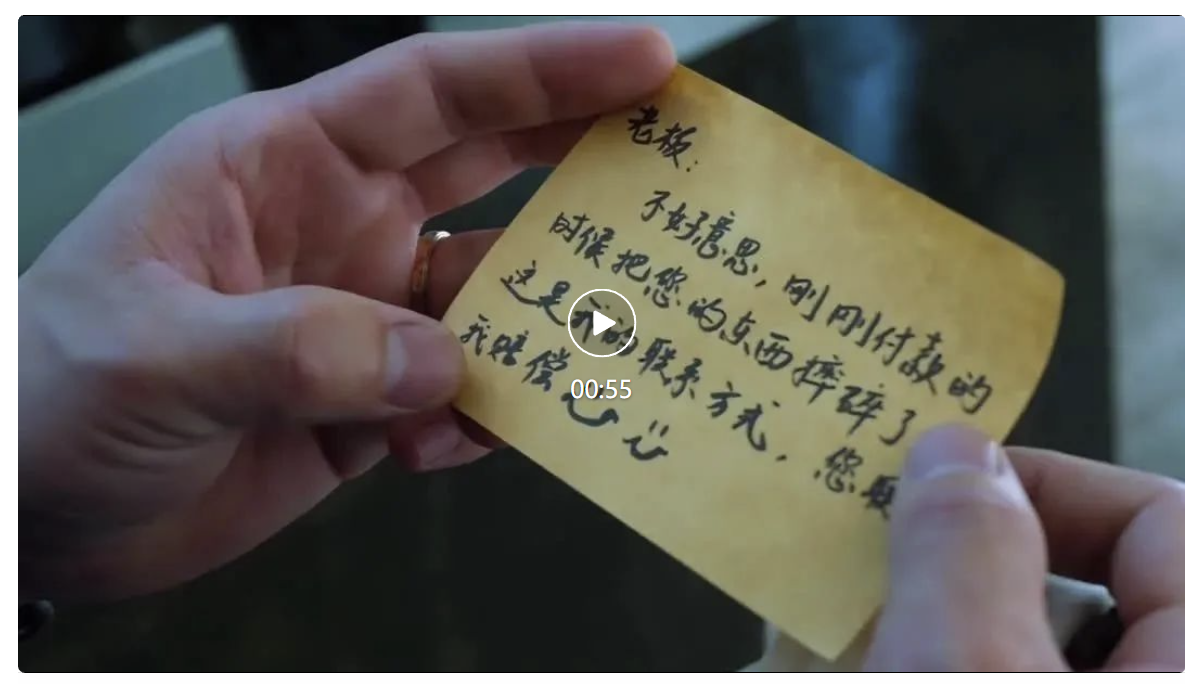 老板:
不好意思,刚刚付款的
时候把您的东西摔碎了
这是我的联系方式,您联
我赔偿
00:55